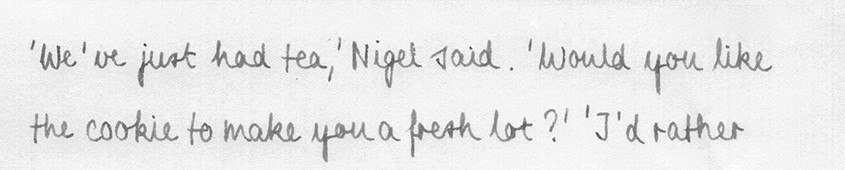 'We've just had tea,' Nigel said. 'Would you like
the cookie to make you a fresh lot?' 'I'd rather